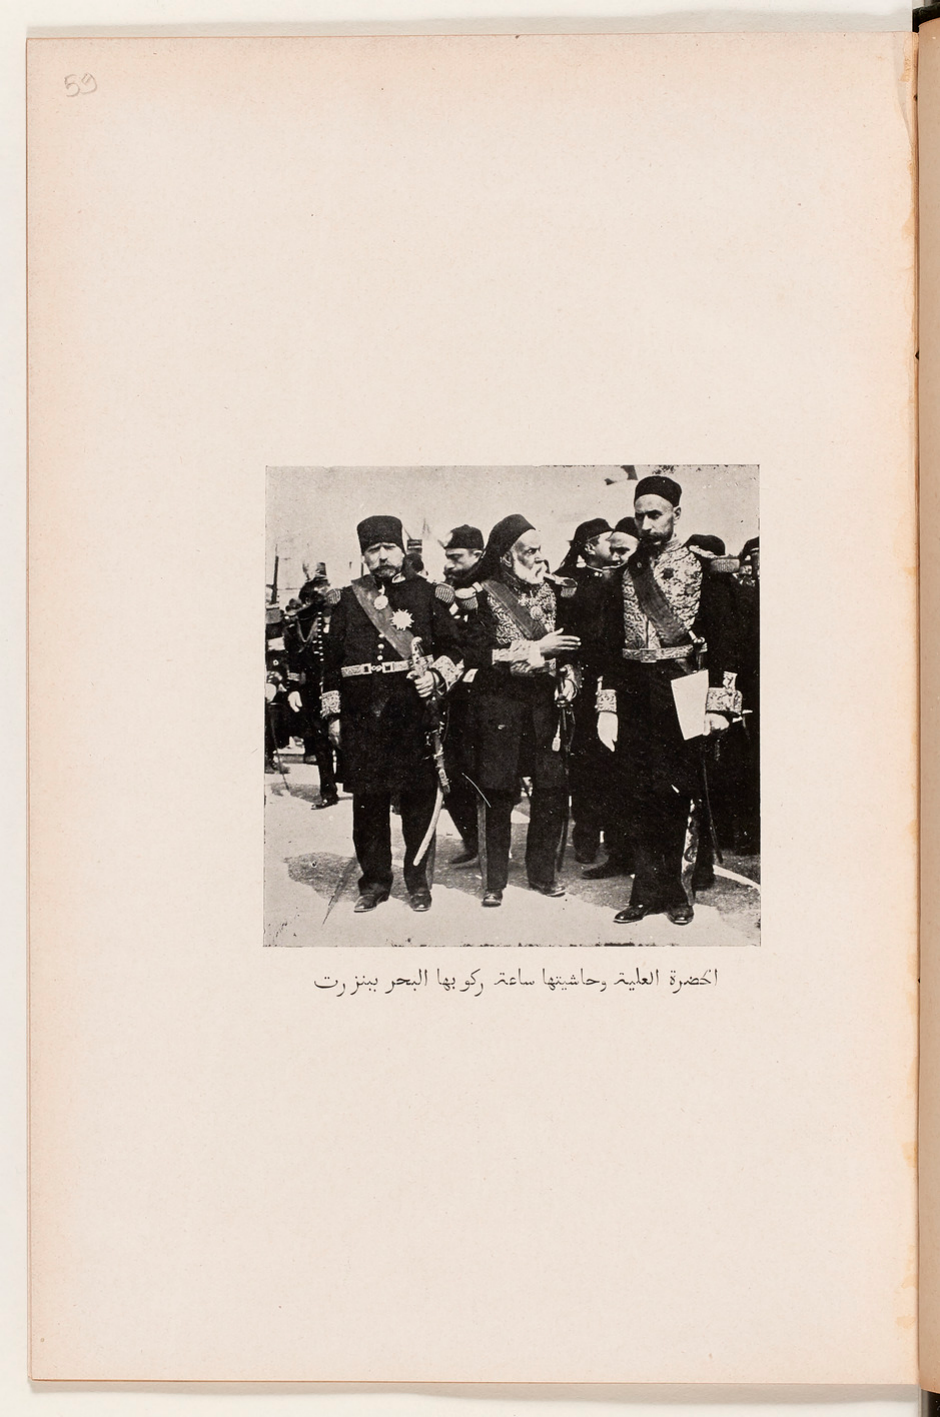 59
الحضرة العلية وحاشيتها ساعة ركوبها البحر ببنزرت